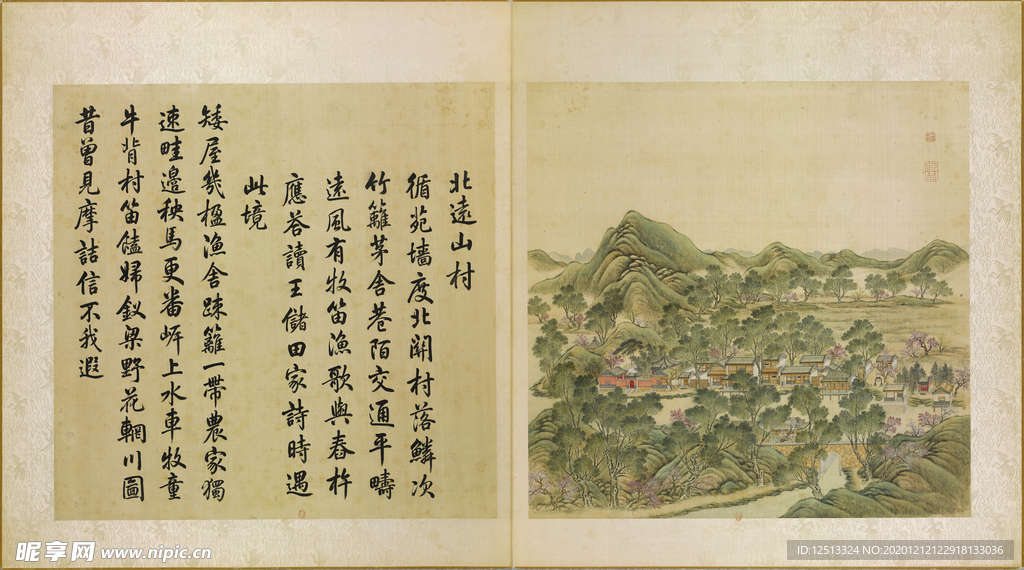 北遠山村
循苑墻度北關村落鱗次
竹籬茅舍巷陌交通平疇
遠風有牧笛漁歌與舂杵
應答讀王儲田家詩時遇
此境
矮屋幾楹漁舍疎籬一帶農家獨
速畦邊秧馬更番岸上水車牧童
牛背村笛饁婦釵梁野花輞川圖
昔曾見摩詰信不我遐
昵享网 www.nipic.cn
ID:12513324 NO:20201212122918133036